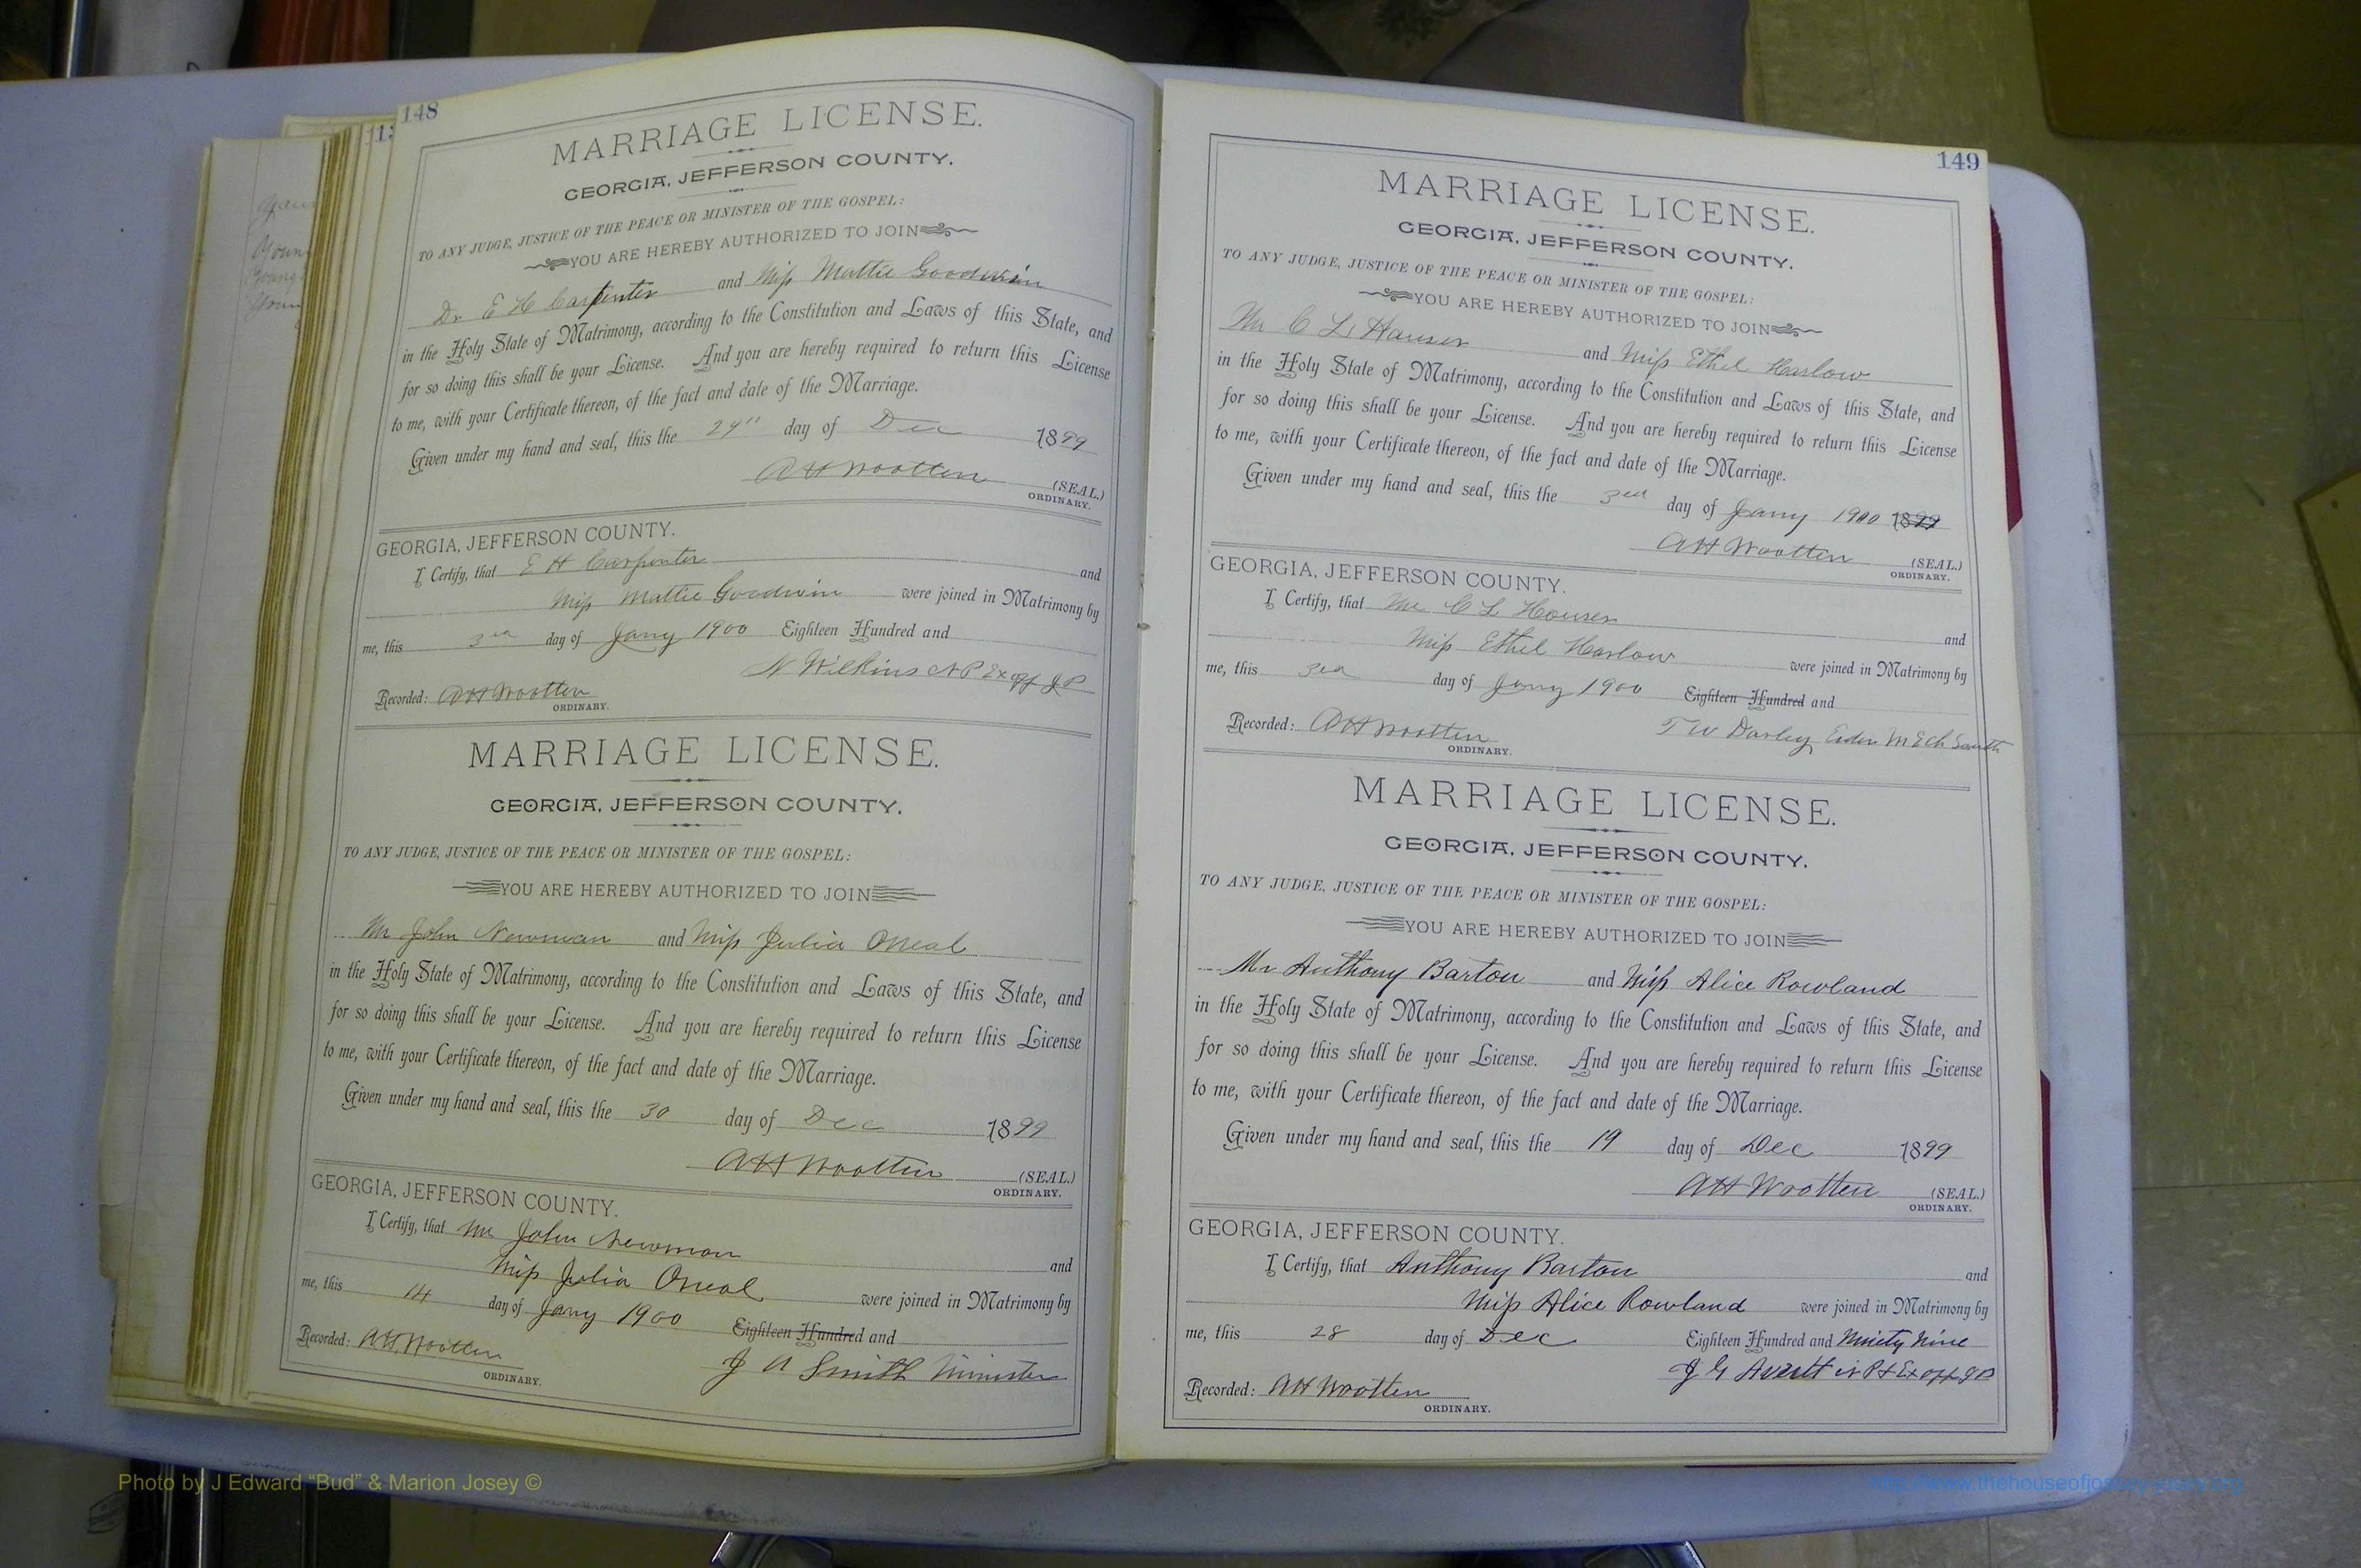 148
MARRIAGE LICENSE.
GEORGIA, JEFFERSON COUNTY.
TO ANY JUDGE, JUSTICE OF THE PEACE OR MINISTER OF THE GOSPEL:
YOU ARE HEREBY AUTHORIZED TO JOIN
Dr E H Carpenter and Miss Mattie Goodwin
in the Holy State of Matrimony, according to the Constitution and Laws of this State, and
for so doing this shall be your License. And you are hereby required to return this License
to me, with your Certificate thereon, of the fact and date of the Marriage.
Given under my hand and seal, this the day of Dec 1899
AH Wootten (SEAL.)
ORDINARY.
GEORGIA, JEFFERSON COUNTY.
I Certify, that E H Carpenter and
Miss Mattie Goodwin were joined in Matrimony by
me, this 3rd day of Jany 1900 Eighteen Hundred and
N Wilkins NP Ex off JP
Recorded: AH Wootten
ORDINARY.
MARRIAGE LICENSE.
GEORGIA, JEFFERSON COUNTY.
TO ANY JUDGE, JUSTICE OF THE PEACE OR MINISTER OF THE GOSPEL:
YOU ARE HEREBY AUTHORIZED TO JOIN
Mr John Newman and Miss Julia Oneal
in the Holy State of Matrimony, according to the Constitution and Laws of this State, and
for so doing this shall be your License. And you are hereby required to return this License
to me, with your Certificate thereon, of the fact and date of the Marriage.
Given under my hand and seal, this the 30 day of Dec 1899
AH Wootten (SEAL.)
ORDINARY.
GEORGIA, JEFFERSON COUNTY.
I Certify, that Mr John Newman and
Miss Julia Oneal were joined in Matrimony by
me, this 14 day of Jany 1900 Eighteen Hundred and
J A Smith Minister
Recorded: AH Wootten
ORDINARY.
149
MARRIAGE LICENSE.
GEORGIA, JEFFERSON COUNTY.
TO ANY JUDGE, JUSTICE OF THE PEACE OR MINISTER OF THE GOSPEL:
YOU ARE HEREBY AUTHORIZED TO JOIN
Mr C L Hauser and Miss Ethel Harlow
in the Holy State of Matrimony, according to the Constitution and Laws of this State, and
for so doing this shall be your License. And you are hereby required to return this License
to me, with your Certificate thereon, of the fact and date of the Marriage.
Given under my hand and seal, this the 3rd day of Jany 1900 1899
AH Wootten (SEAL.)
ORDINARY.
GEORGIA, JEFFERSON COUNTY.
I Certify, that Mr C L Houser and
Miss Ethel Harlow were joined in Matrimony by
me, this 3rd day of Jany 1900 Eighteen Hundred and
T W Darley Elder M E Ch South
Recorded: AH Wootten
ORDINARY.
MARRIAGE LICENSE.
GEORGIA, JEFFERSON COUNTY.
TO ANY JUDGE, JUSTICE OF THE PEACE OR MINISTER OF THE GOSPEL:
YOU ARE HEREBY AUTHORIZED TO JOIN
Mr Anthony Barton and Miss Alice Rowland
in the Holy State of Matrimony, according to the Constitution and Laws of this State, and
for so doing this shall be your License. And you are hereby required to return this License
to me, with your Certificate thereon, of the fact and date of the Marriage.
Given under my hand and seal, this the 19 day of Dec 1899
AH Wootten (SEAL.)
ORDINARY.
GEORGIA, JEFFERSON COUNTY.
I Certify, that Anthony Barton and
Miss Alice Rowland were joined in Matrimony by
me, this 28 day of Dec Eighteen Hundred and Ninety Nine
J G Avertt
Recorded: AH Wootten
ORDINARY.
Photo by J Edward “Bud” & Marion Josey ©